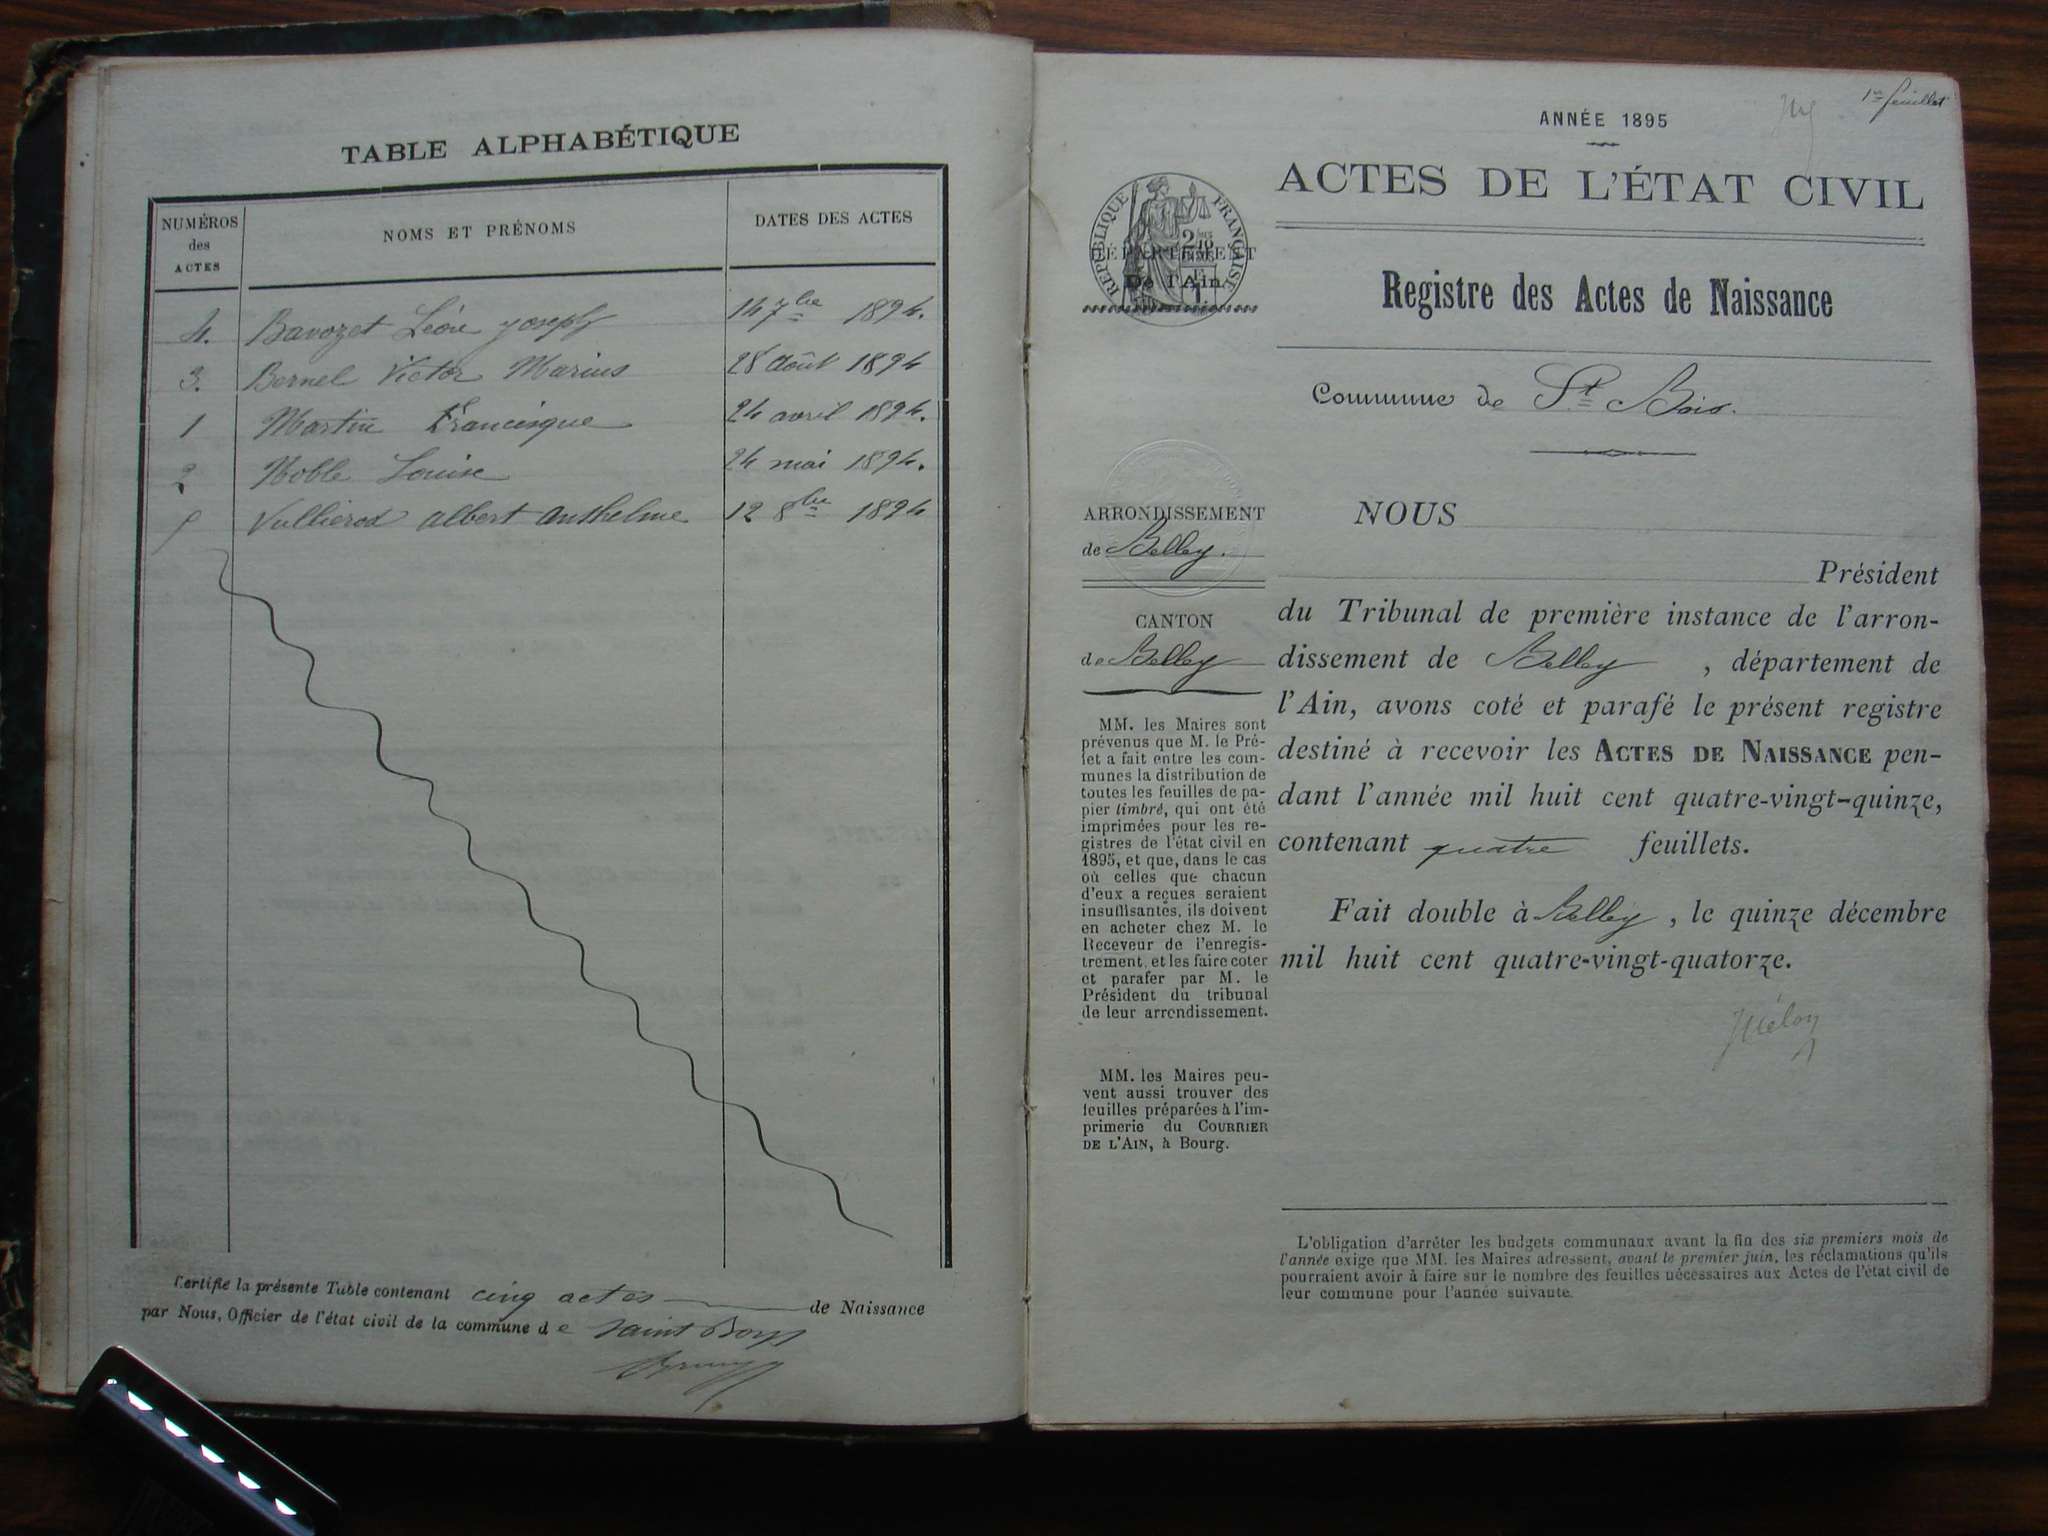 TABLE ALPHABÉTIQUE
NUMÉROS des ACTES
NOMS ET PRÉNOMS
DATES DES ACTES
4. Bavozet Léon Joseph 14 7bre 1894.
3. Bernel Victor Marius 28 août 1894
1 Martin Francisque 24 avril 1894.
2 Noble Louise 24 mai 1894.
5 Vullierod Albert Anthelme 12 8bre 1894
Certifie la présente Table contenant cinq actes de Naissance
par Nous, Officier de l'état civil de la commune de Saint Boys
1er feuillet
ANNÉE 1895
ACTES DE L'ÉTAT CIVIL
RÉPUBLIQUE FRANÇAISE
DÉPARTEMENT
De l'Ain
Registre des Actes de Naissance
Commune de St Bois.
ARRONDISSEMENT
de Belley.
CANTON
de Belley
MM. les Maires sont
prévenus que M. le Pré-
fet a fait entre les com-
munes la distribution de
toutes les feuilles de pa-
pier timbré, qui ont été
imprimées pour les re-
gistres de l'état civil en
1895, et que, dans le cas
où celles que chacun
d'eux a reçues seraient
insuffisantes, ils doivent
en acheter chez M. le
Receveur de l'enregis-
trement, et les faire coter
et parafer par M. le
Président du tribunal
de leur arrondissement.
MM. les Maires peu-
vent aussi trouver des
feuilles préparées à l'im-
primerie du COURRIER
DE L'AIN, à Bourg.
NOUS
Président
du Tribunal de première instance de l'arron-
dissement de Belley, département de
l'Ain, avons coté et parafé le présent registre
destiné à recevoir les ACTES DE NAISSANCE pen-
dant l'année mil huit cent quatre-vingt-quinze,
contenant quatre feuillets.
Fait double à Belley, le quinze décembre
mil huit cent quatre-vingt-quatorze.
L'obligation d'arrêter les budgets communaux avant la fin des six premiers mois de
l'année exige que MM. les Maires adressent, avant le premier juin, les réclamations qu'ils
pourraient avoir à faire sur le nombre des feuilles nécessaires aux Actes de l'état civil de
leur commune pour l'année suivante.